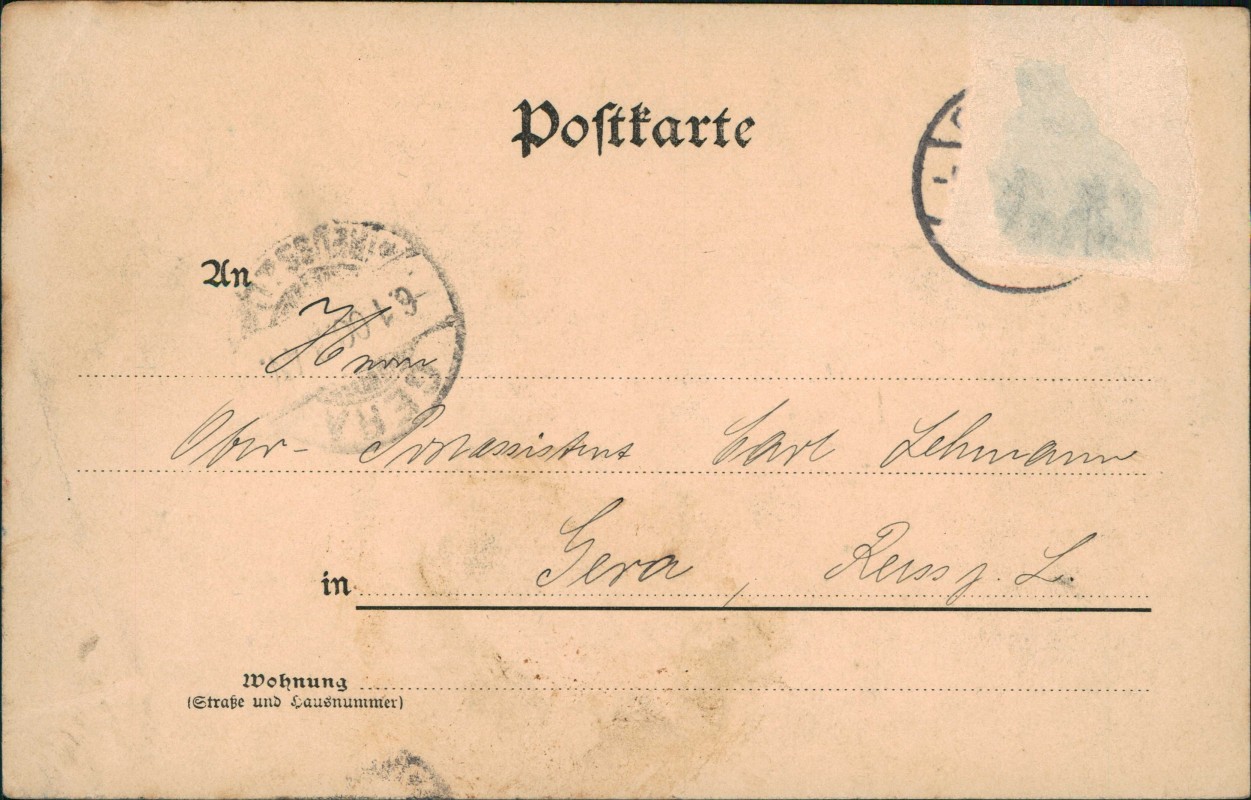 Postkarte
An
Herrn
Ober-Postassistent Carl Lehmann
in Gera, Reuss j. L.
Wohnung
(Straße und Hausnummer)
GERA
6.1.00